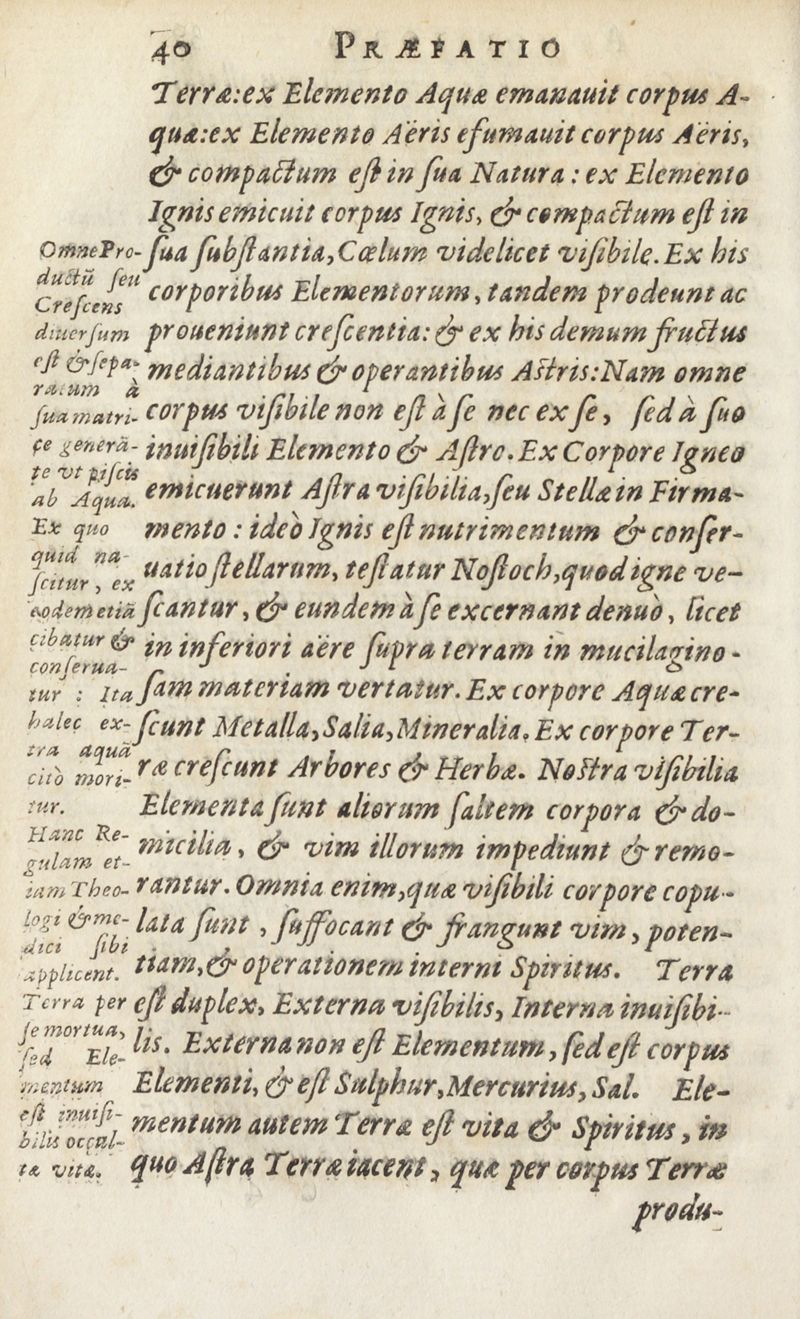 40 PRÆFATIO
Terræ:ex Elemento Aquæ emanauit corpus A-
quæ:ex Elemento Aëris efumauit corpus Aëris,
& compactum eſt in ſua Natura : ex Elemento
Ignis emicuit corpus Ignis, & compactum eſt in
ſua ſubſtantia, Cœlum videlicet viſibile. Ex his
corporibus Elementorum, tandem prodeunt ac
proueniunt creſcentia: & ex his demum fructus
mediantibus & operantibus Aſtris: Nam omne
corpus viſibile non eſt à ſe nec ex ſe, ſed à ſuo
inuiſibili Elemento & Aſtro. Ex Corpore Igneo
emicuerunt Aſtra viſibilia, ſeu Stellæ in Firma-
mento : ideò Ignis eſt nutrimentum & conſer-
uatio ſtellarum, teſtatur Noſtoch, quod igne ve-
ſcantur, & eundem à ſe excernant denuò, licet
in inferiori aëre ſupra terram in mucilagino-
ſam materiam vertatur. Ex corpore Aquæ cre-
ſcunt Metalla, Salia, Mineralia. Ex corpore Ter-
ræ creſcunt Arbores & Herbæ. Noſtra viſibilia
Elementa ſunt aliorum ſaltem corpora & do-
micilia, & vim illorum impediunt & remo-
rantur. Omnia enim, quæ viſibili corpore copu-
lata ſunt, ſuffocant & frangunt vim, poten-
tiam, & operationem interni Spiritus. Terra
eſt duplex, Externa viſibilis, Interna inuiſibi-
lis. Externa non eſt Elementum, ſed eſt corpus
Elementi, & eſt Sulphur, Mercurius, Sal. Ele-
mentum autem Terræ eſt vita & Spiritus, in
quo Aſtra Terræ iacent, quæ per corpus Terræ
produ-
Omne Pro-
ductū ſeu
Creſcens
diuerſum
eſt & ſepa-
ratum à
ſua matri-
ce generā-
te vt piſcis
ab Aqua.
Ex quo
quid na-
ſcitur, ex
eodem etiā
cibatur &
conſerua-
tur : Ita
halec ex-
tra aquā
citò mori-
tur.
Hanc Re-
gulam et-
iam Theo-
logi & me-
dici ſibi
applicent.
Terra per
ſe mortua,
ſed Ele-
mentum
eſt inuiſi-
bilis occul-
ta vita.